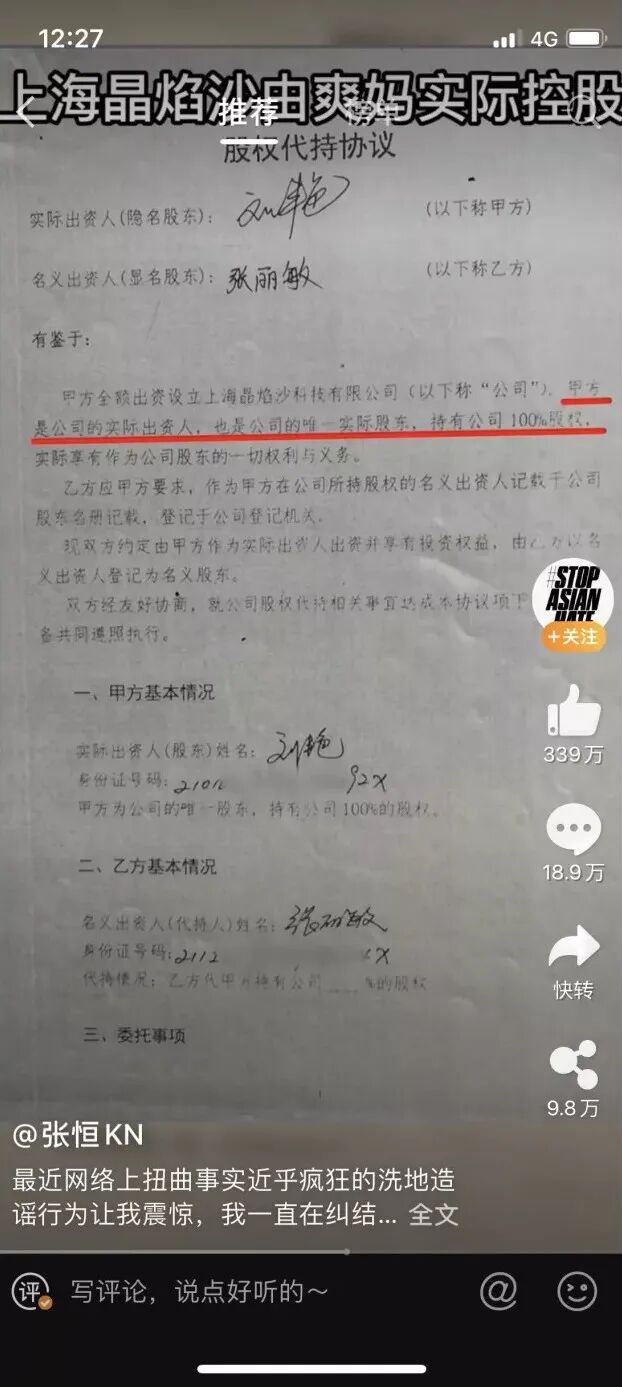 12:27
4G
上海晶焰沙由爽妈实际控股
推荐
榜单
股权代持协议
实际出资人(隐名股东): 刘艳 (以下称甲方)
名义出资人(显名股东): 张丽敏 (以下称乙方)
有鉴于:
甲方全额出资设立上海晶焰沙科技有限公司(以下称“公司”),甲方
是公司的实际出资人,也是公司的唯一实际股东,持有公司100%股权,
实际享有作为公司股东的一切权利与义务。
乙方应甲方要求,作为甲方在公司所持股权的名义出资人记载于公司
股东名册记载,登记于公司登记机关.
现双方约定由甲方作为实际出资人出资并享有投资权益,由乙方以名
义出资人登记为名义股东。
双方经友好协商,就公司股权代持相关事宜达成本协议项下
备共同遵照执行。
#STOP
ASIAN
HATE
+关注
一、甲方基本情况
实际出资人(股东)姓名: 刘艳
身份证号码: 2101 92X
甲方为公司的唯一股东,持有公司100%的股权。
339万
二、乙方基本情况
18.9万
名义出资人(代持人)姓名: 张丽敏
身份证号码: 2112 X
代持情况:乙方代甲方持有公司____%的股权
快转
三、委托事项
9.8万
@张恒KN
最近网络上扭曲事实近乎疯狂的洗地造
谣行为让我震惊,我一直在纠结... 全文
评 写评论,说点好听的~ @